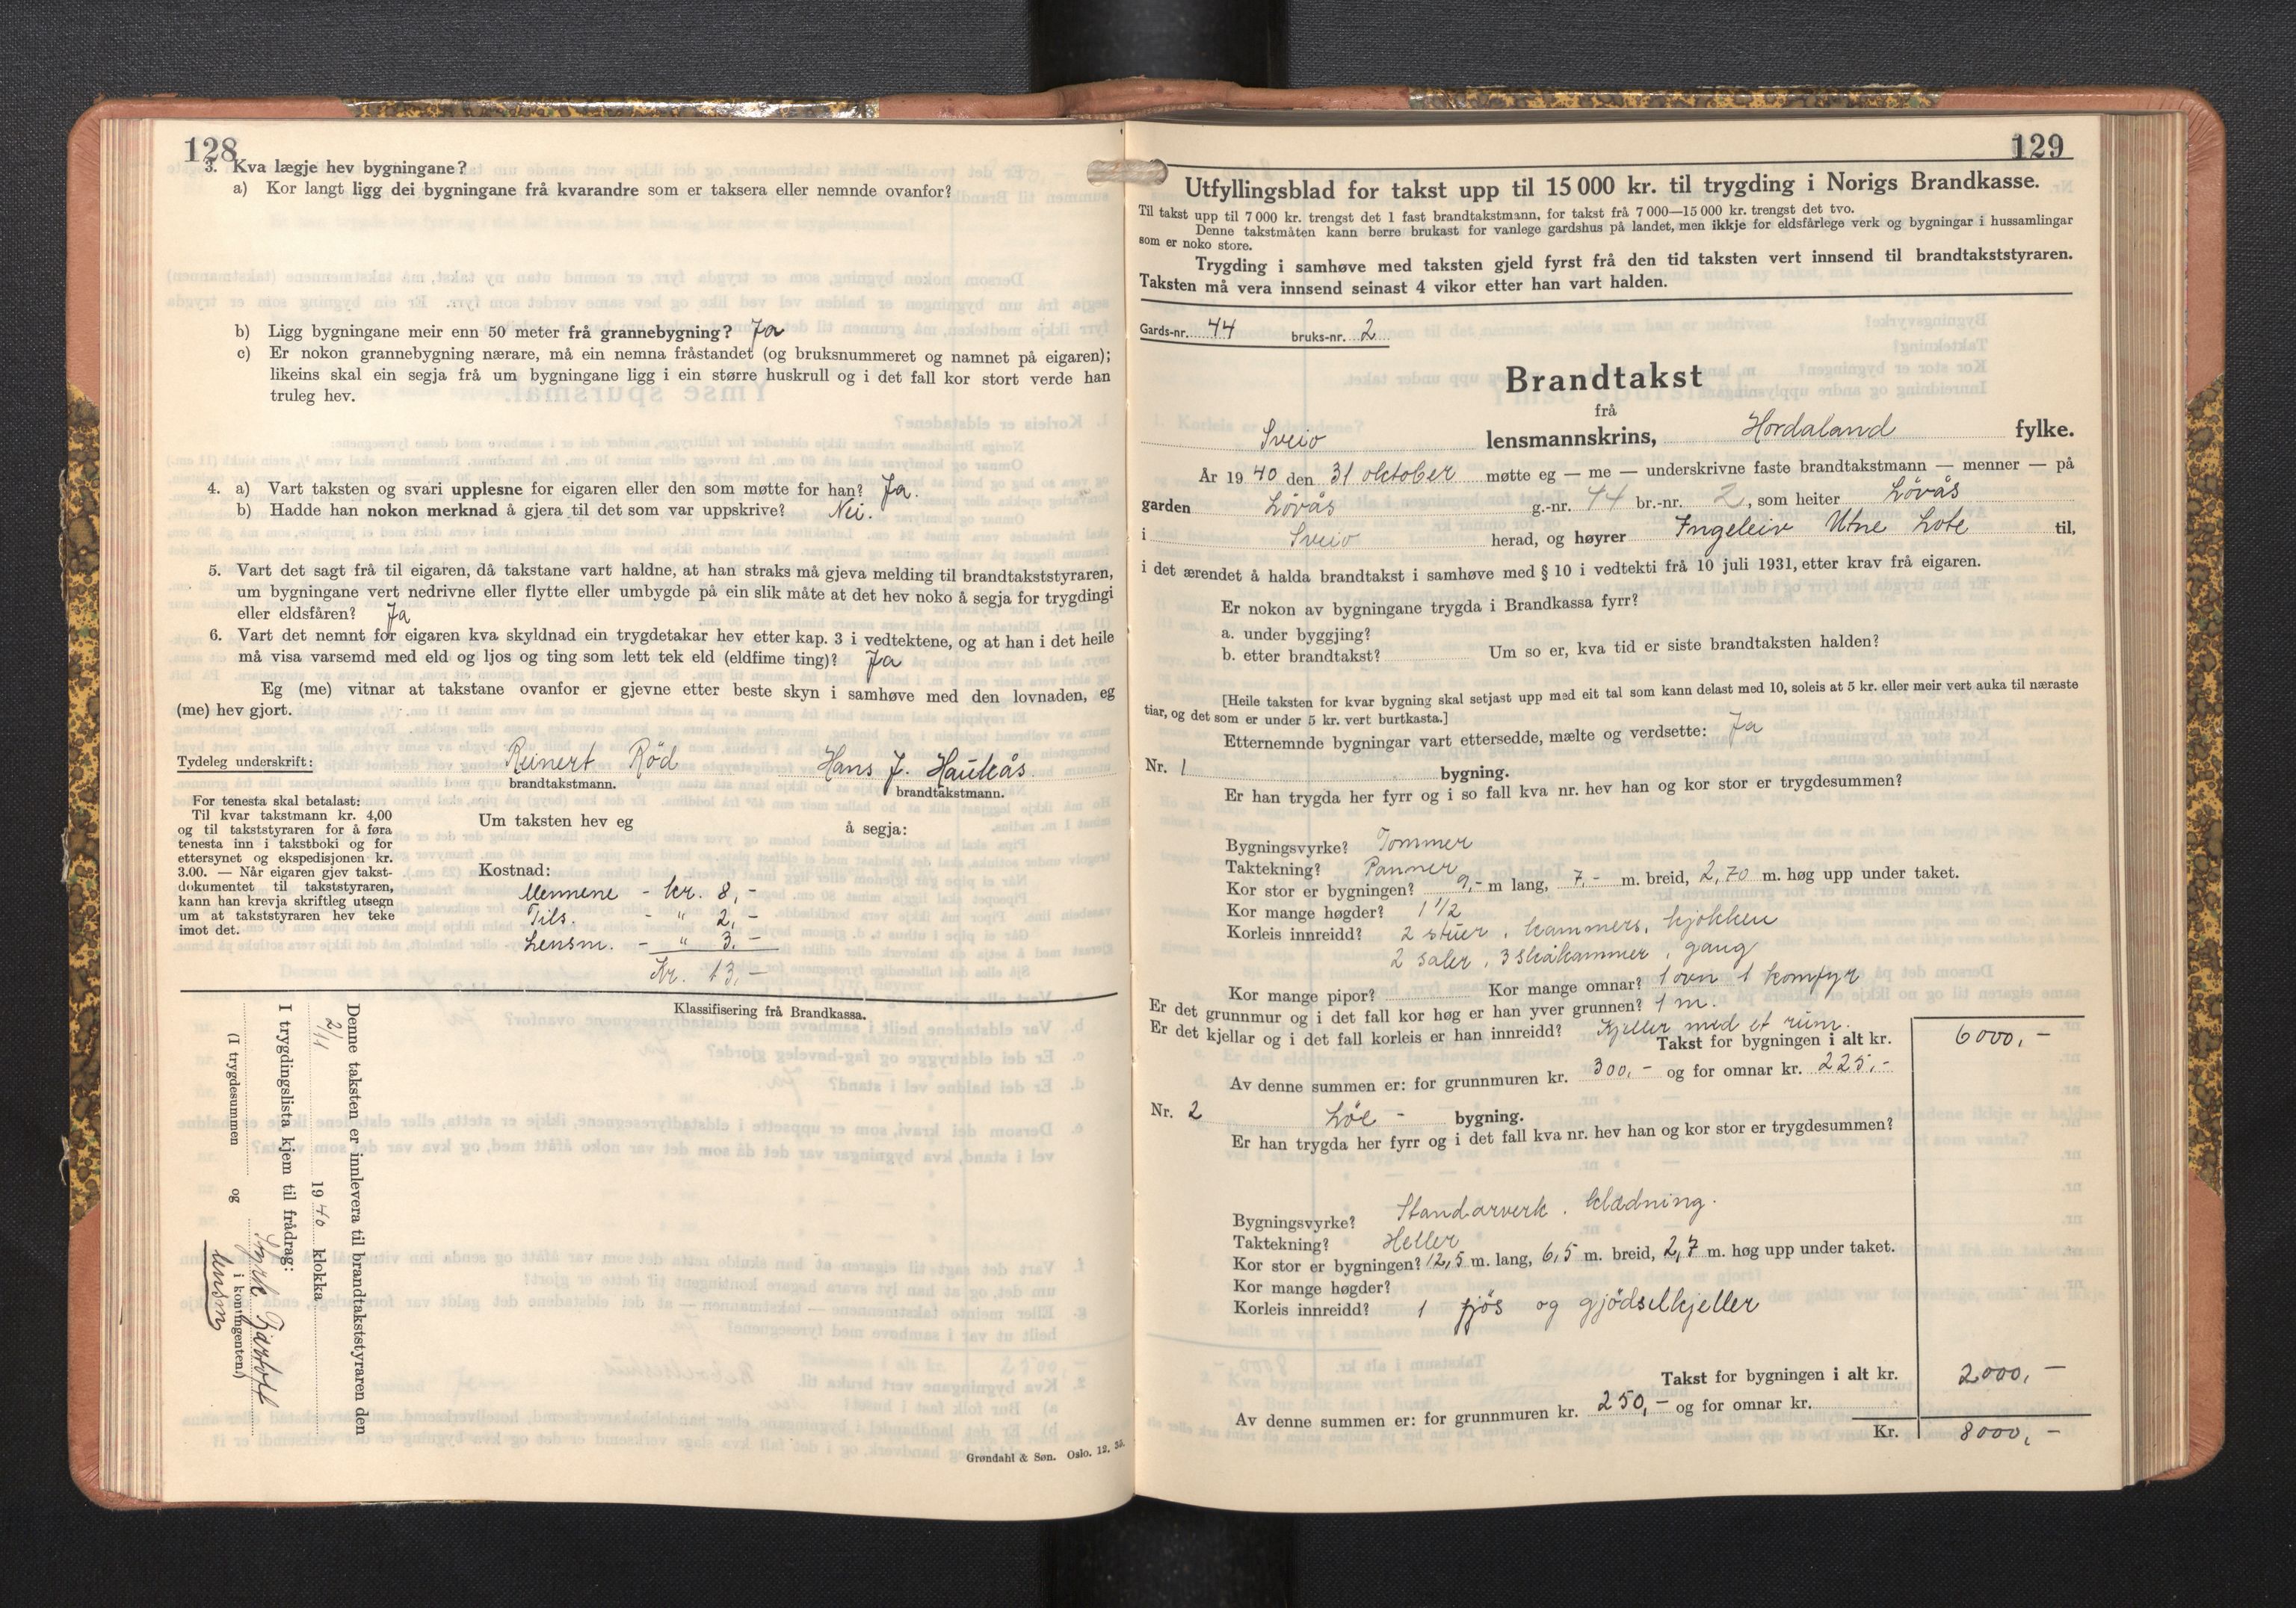 128
3. Kva lægje hev bygningane?
a) Kor langt ligg dei bygningane frå kvarandre som er taksera eller nemnde ovanfor?
b) Ligg bygningane meir enn 50 meter frå grannebygning? Ja
c) Er nokon grannebygning nærare, må ein nemna fråstandet (og bruksnummeret og namnet på eigaren);
likeins skal ein segja frå um bygningane ligg i ein større huskrull og i det fall kor stort verde han
truleg hev.
4. a) Vart taksten og svari upplesne for eigaren eller den som møtte for han? Ja.
b) Hadde han nokon merknad å gjera til det som var uppskrive? Nei.
5. Vart det sagt frå til eigaren, då takstane vart haldne, at han straks må gjeva melding til brandtakststyraren,
um bygningane vert nedrivne eller flytte eller umbygde på ein slik måte at det hev noko å segja for trygdingi
eller eldsfåren? Ja
6. Vart det nemnt for eigaren kva skyldnad ein trygdetakar hev etter kap. 3 i vedtektene, og at han i det heile
må visa varsemd med eld og ljos og ting som lett tek eld (eldfime ting)? Ja
Eg (me) vitnar at takstane ovanfor er gjevne etter beste skyn i samhøve med den lovnaden, eg
(me) hev gjort.
Tydeleg underskrift: Reinert Rød Hans J. Haukås
brandtakstmann. brandtakstmann.
For tenesta skal betalast:
Til kvar takstmann kr. 4,00
og til takststyraren for å føra
tenesta inn i takstboki og for
ettersynet og ekspedisjonen kr.
3.00. — Når eigaren gjev takst-
dokumentet til takststyraren,
kann han krevja skriftleg utsegn
um at takststyraren hev teke
imot det.
Um taksten hev eg å segja:
Kostnad:
Mennene - kr. 8,-
Tils. - " 2,-
Lensm. - " 3.-
Kr. 13,-
Klassifisering frå Brandkassa.
Denne taksten er innlevera til brandtakststyraren den
2/11 1940 klokka
I trygdingslista kjem til frådrag:
(I trygdesummen og i kontingenten)
lensm
Grøndahl & Søn. Oslo. 12. 35.
129
Utfyllingsblad for takst upp til 15 000 kr. til trygding i Norigs Brandkasse.
Til takst upp til 7 000 kr. trengst det 1 fast brandtakstmann, for takst frå 7 000—15 000 kr. trengst det tvo.
Denne takstmåten kann berre brukast for vanlege gardshus på landet, men ikkje for eldsfårlege verk og bygningar i hussamlingar
som er noko store.
Trygding i samhøve med taksten gjeld fyrst frå den tid taksten vert innsend til brandtakststyraren.
Taksten må vera innsend seinast 4 vikor etter han vart halden.
Gards-nr. 44 bruks-nr. 2
Brandtakst
frå
Sveio lensmannskrins, Hordaland fylke.
År 1940 den 31 oktober møtte eg — me — underskrivne faste brandtakstmann — menner — på
garden Lövås g.-nr. 44 br.-nr. 2, som heiter Lövås
i Sveio herad, og høyrer Ingeleiv Utne Lote til,
i det ærendet å halda brandtakst i samhøve med § 10 i vedtekti frå 10 juli 1931, etter krav frå eigaren.
Er nokon av bygningane trygda i Brandkassa fyrr?
a. under byggjing?
b. etter brandtakst? Um so er, kva tid er siste brandtaksten halden?
[Heile taksten for kvar bygning skal setjast upp med eit tal som kann delast med 10, soleis at 5 kr. eller meir vert auka til næraste
tiar, og det som er under 5 kr. vert burtkasta.]
Etternemnde bygningar vart ettersedde, mælte og verdsette: Ja
Nr. 1 bygning.
Er han trygda her fyrr og i so fall kva nr. hev han og kor stor er trygdesummen?
Bygningsvyrke? Tommer
Taktekning? Panner
Kor stor er bygningen? 9,- m lang, 7,- m. breid, 2,70 m. høg upp under taket.
Kor mange høgder? 1 1/2
Korleis innreidd? 2 stuer, kammers, kjøkken
2 saler, 3 skåkammer, gang
Kor mange pipor? Kor mange omnar? 1 ovn 1 komfyr
Er det grunnmur og i det fall kor høg er han yver grunnen? 1 m.
Er det kjellar og i det fall korleis er han innreidd? Kjeller med et rum.
Takst for bygningen i alt kr. 6000,-
Av denne summen er: for grunnmuren kr. 300,- og for omnar kr. 225,-
Nr. 2 Löe - bygning.
Er han trygda her fyrr og i det fall kva nr. hev han og kor stor er trygdesummen?
Bygningsvyrke? Standarverk. klædning.
Taktekning? Heller
Kor stor er bygningen? 12,5 m. lang, 6,5 m. breid, 2,7 m. høg upp under taket.
Kor mange høgder?
Korleis innreidd? 1 fjös og gjödselkjeller
Takst for bygningen i alt kr. 2000,-
Av denne summen er: for grunnmuren kr. 250,- og for omnar kr.
Kr. 8000,-